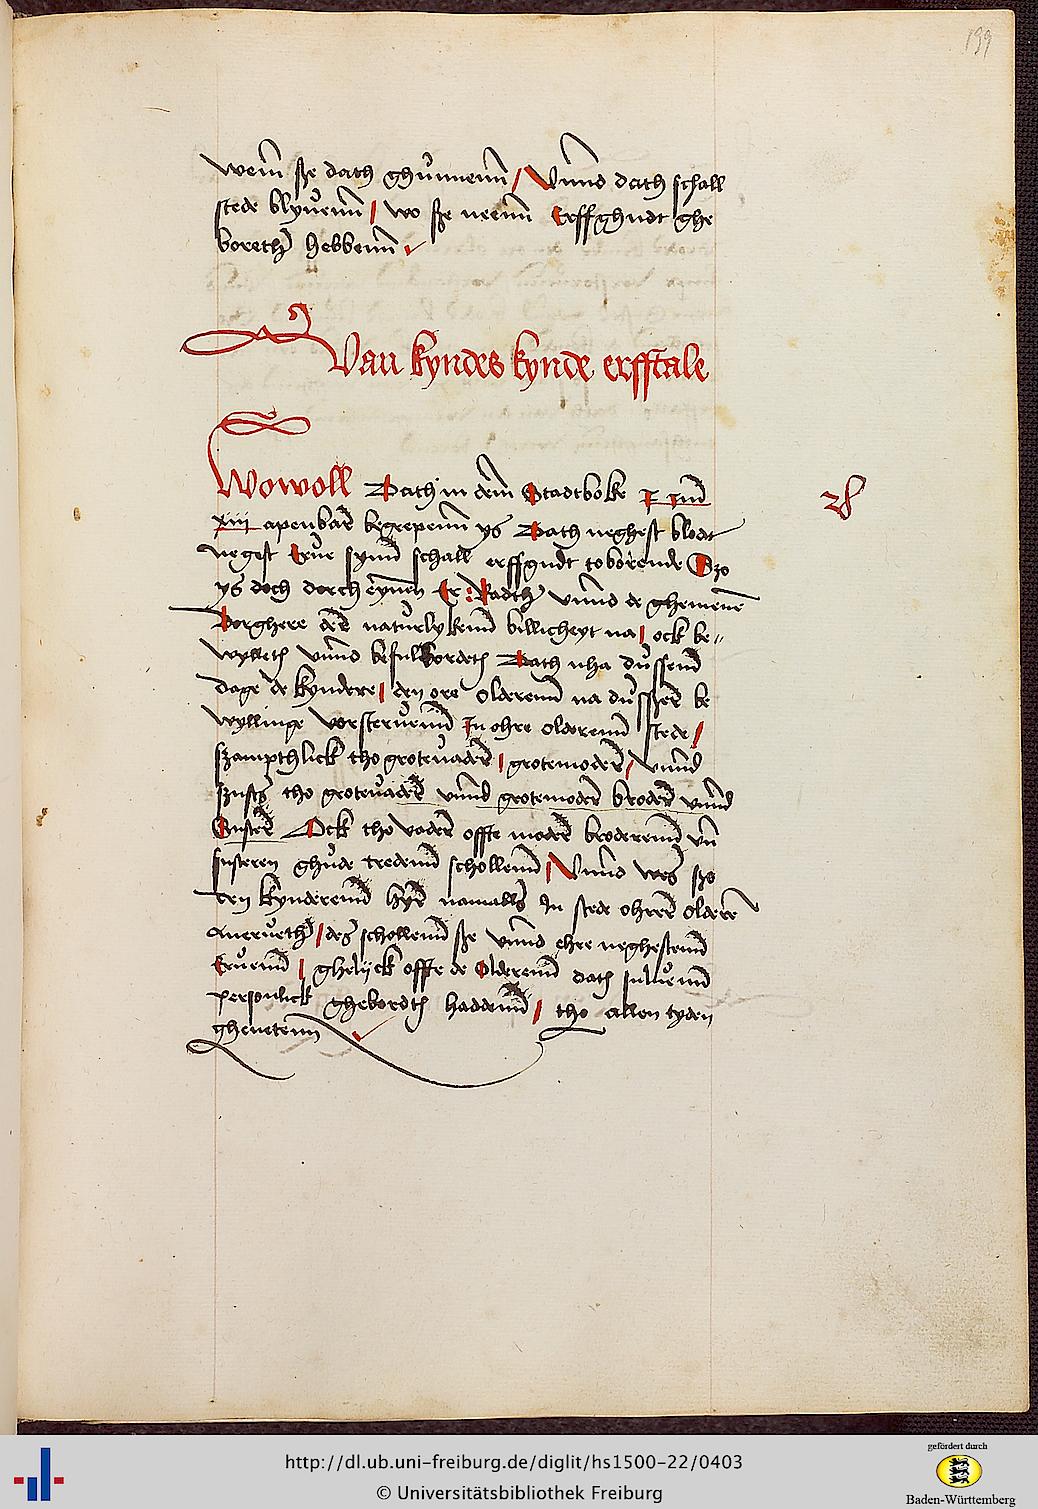 199
wem̄ sze dath ghůnnenn / Vnnd dath schall
stede blyůenn / wo sze neenn Erffghudt ghe
boreth hebbenn /
Van kyndes kynde erfftale
Wowoll Dath in dem̄ Stadtboke
xiii apenbar begrepenn ys Dath neghest blodt
negest Erůe synn schall erffgudt toborende Szo
ys doch dorch eynen Er: Radth vnnd de ghemene
Borghere dere natůrlykenn billicheyt na / ock be
wylleth vnnd befulbordeth Dath nha důssenn
dage de kyndere / den ore olderenn na důsszer be
wyllinge vorsterůenn In ohre olderenn stede /
szampthlick tho groteůader / grotemoder / vnnd
szusth tho groteůader vnnd grotemoder broder vnnd
Suster Ock tho vader offte moder broderenn vn̄
susteren ghůde tredenn schollenn / Vnnd wes szo
den kynderenn hyr namalls In stede ohrer oldere
Aneruet / des schollenn sze vnnd ehre neghestenn
Erůenn / ghelijck offte de Olderenn dath suluenn
personlick ghebordth haddenn / tho allen tyden
ghenetenn
http://dl.ub.uni-freiburg.de/diglit/hs1500-22/0403
© Universitätsbibliothek Freiburg
gefördert durch
Baden-Württemberg